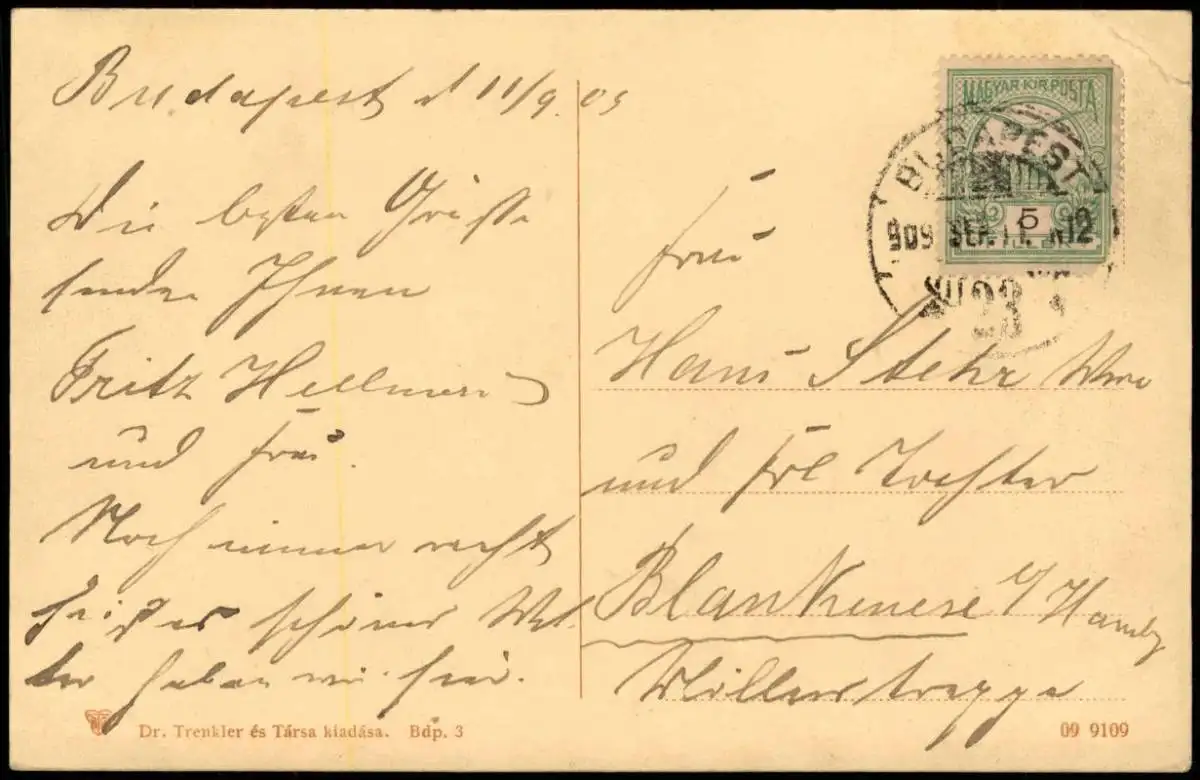 Budapest d 11/9. 09
Die besten Grüße
senden Ihnen
Fritz Hellmers
und Frau.
Noch immer recht
heißes schönes Wet-
ter haben wir hier.
MAGYAR KIR. POSTA
BUDAPEST
5
909 SEP. 11. N12
23
Frau
Hans Stehr Wwe
und Frl Tochter
Blankenese b/Hambg
Möllerstreppe
Dr. Trenkler és Társa kiadása. Bdp. 3
09 9109